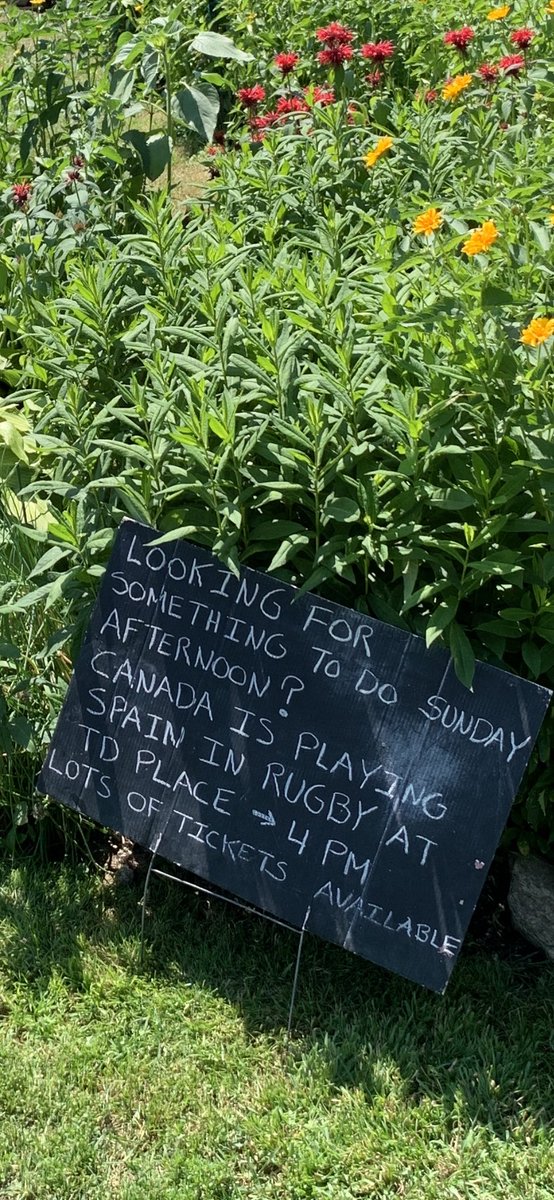 LOOKING FOR
SOMETHING TO DO SUNDAY
AFTERNOON?
CANADA IS PLAYING
SPAIN IN RUGBY AT
TD PLACE - 4 PM
LOTS OF TICKETS AVAILABLE